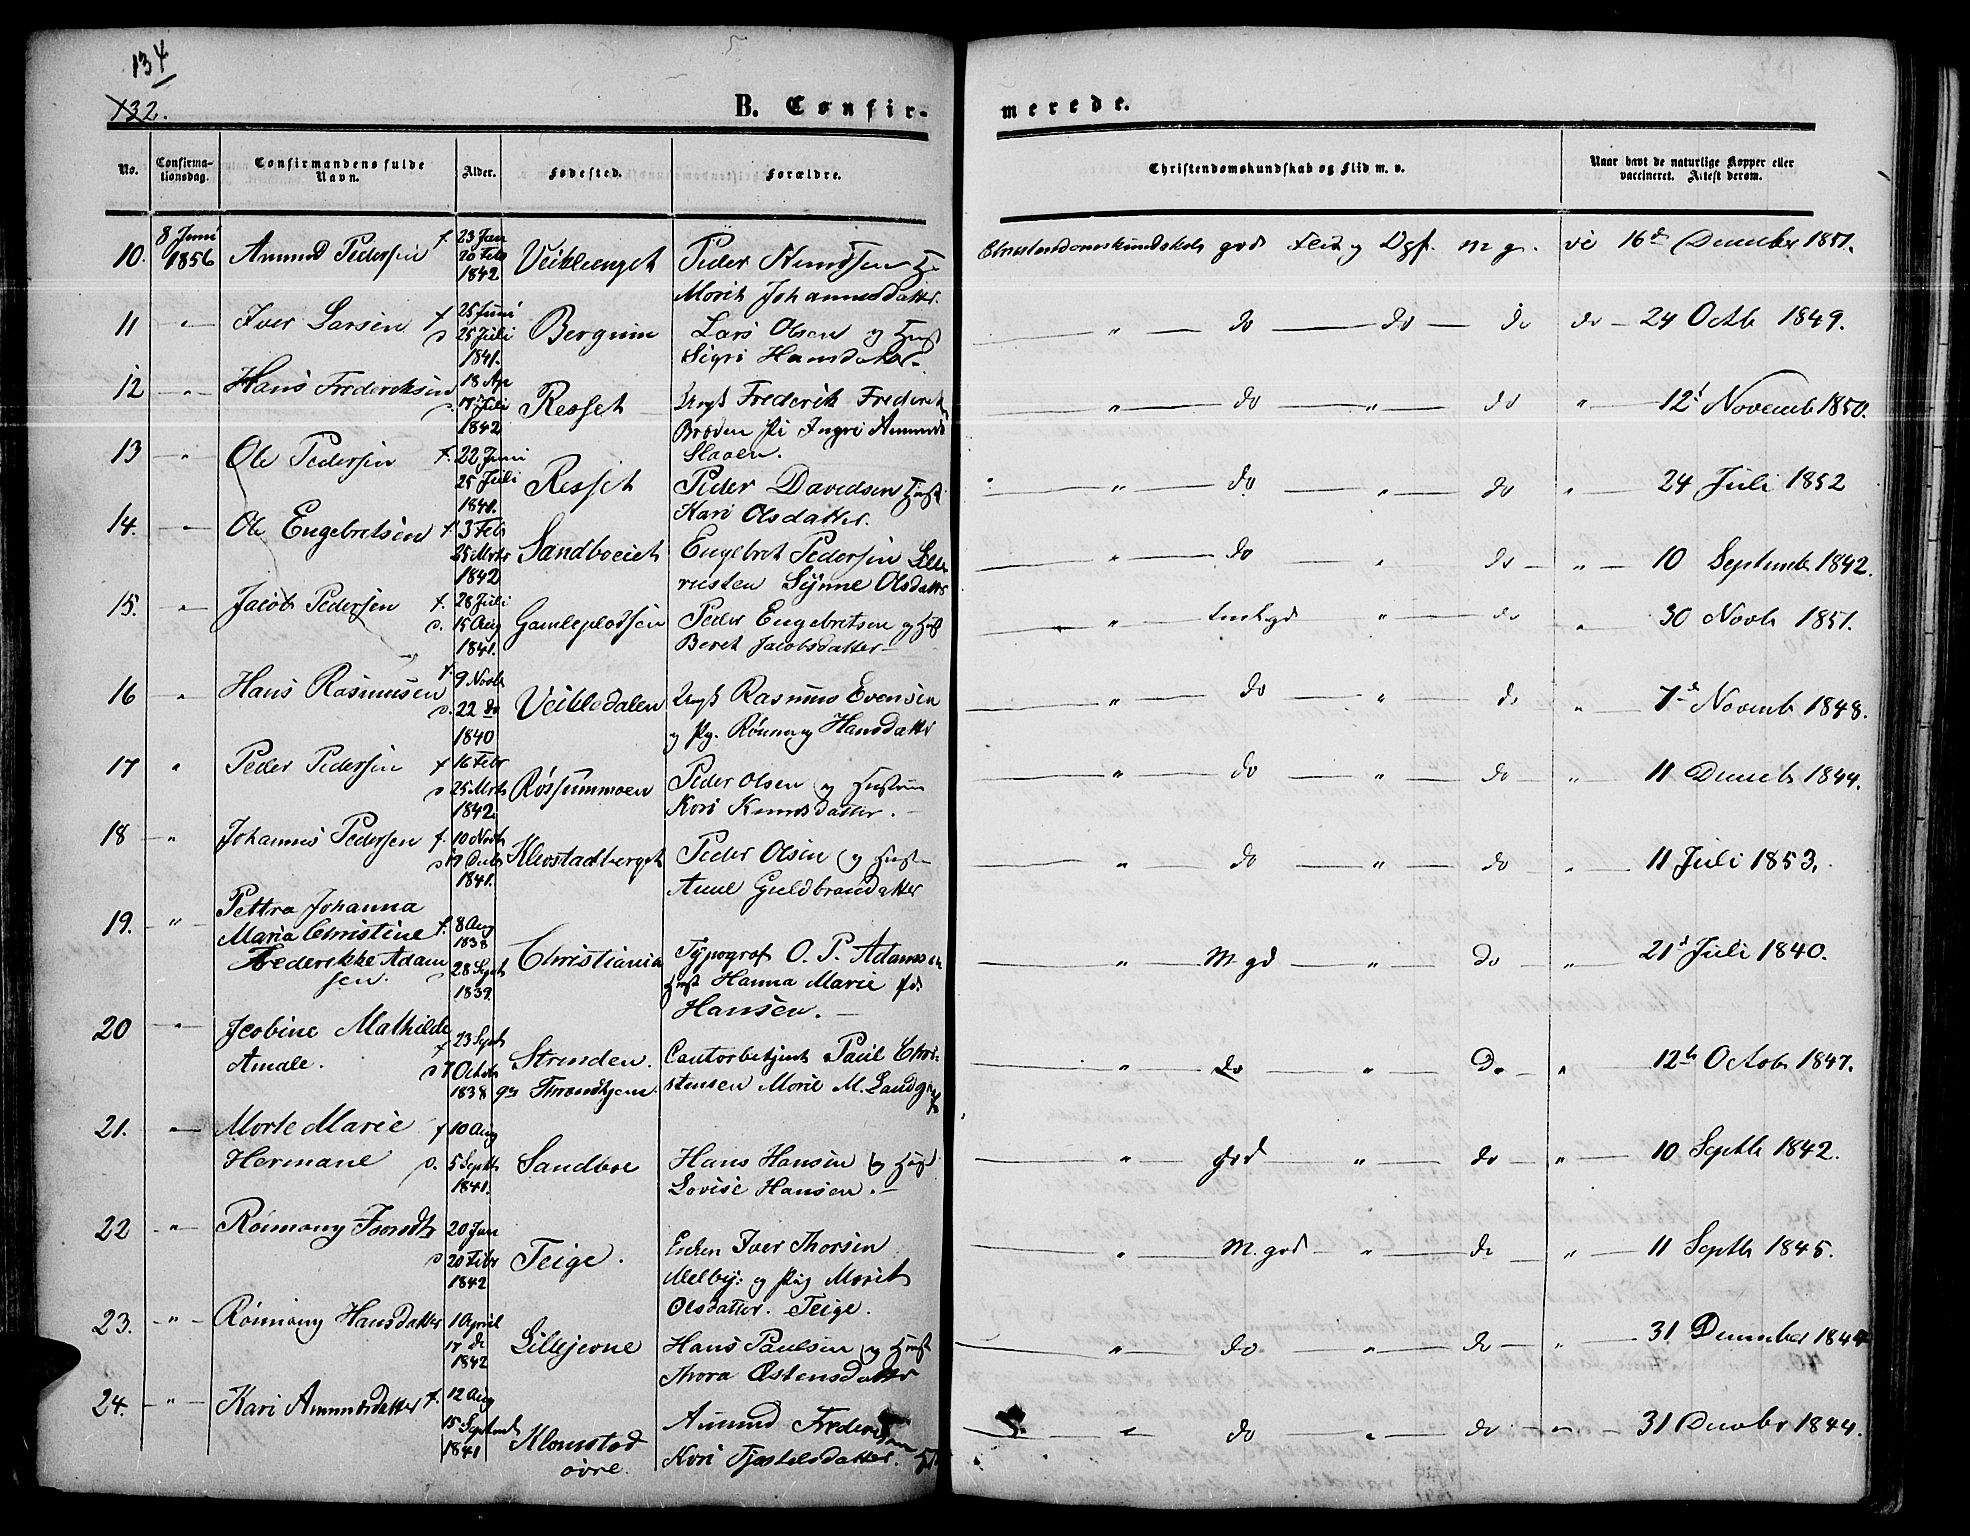 134
132.
B. Confir-
merede.
No.
Confirma-
tionsdag.
Confirmandens fulde
Navn.
Alder.
Fødested.
Forældre.
Christendomskundskab og Flid m. v.
Naar havt de naturlige Kopper eller
vaccineret. Attest derom.
10. 8 Juni 1856 Amund Pedersen f. 23 Jan 20 Feb 1842 Veikleenget Peder Knudsen
Morit Johannesdatter. Christendomskundskab god Flid og m g. 16d December 1851.
11 " Iver Larsen f 25 Juni d 25 Juli 1841. Bergum Lars Olsen og Hust
Sigri Hansdatter. " do do do do 24 Octb 1849.
12 " Hans Frederiksen 18 Ap d. 17 Juli 1842 Resset Ungk Frederik Frederik
Brøden Pi Ingri Amunds
Slaaen. " do " do " 12t Novemb 1850.
13 " Ole Pedersen f. 22 Juni 25 Juli 1841. Resset Peder Davidsen Hust
Kari Olsdatter. " do " do " 24 Juli 1852
14. " Ole Engebretsen f. 3 Feb 25 Mrts 1842 Sandboeiet Engebret Pedersen Lille
rusten Synne Olsdatter " do " do " 10 Septemb 1842.
15. " Jacob Pedersen f. 28 Juli d. 15 Aug 1841. Gamleplodsen Peder Engebretsen og Hust
Beret Jacobsdatter " " do " 30 Novb 1851.
16 " Hans Rasmusen f. 9 Novb d. 22 do 1840 Veikledalen Ungk Rasmus Evensen
og Pg. Rönnaug Hansdatter " do " do " 7de Novemb 1848.
17 " Peder Pedersen f 16 Febr d 25 Mrts 1842 Røssummoen Peder Olsen og Hustru
Kari Knudsdatter. " do " do " 11 Decemb 1844.
18 " Johannes Pedersen f. 10 Novb d 1841. Klevstadberget Peder Olsen og Hust
Anne Guldbrandatter " do " do " 11 Juli 1853.
19. " Pettra Johanna
Maria Christine
Frederikke Adam
sen. f. 8 Aug 1838 d 28 Sept 1839. Christiania Typograf O. P. Adamsen
Hust Hanna Marie fd.
Hansen. " M. gd " Do " 21d Juli 1840.
20 " Jcobine Mathilde
Amale. f 23 Sept d 7 Octob 1838 Strinden.
Throndhjem. Cantorbetjent Paul Chri-
stensen Marie M. Landgraf " do " Do " 12te Octob 1847.
21. " Morte Marie
Hermane f 10 Aug d. 5 Septb 1841. Sandboe Hans Hansen og Hust
Lovise Hansen. " god " do " 10 Septb 1842.
22 " Rönnaug 20 Jan d 20 Febr 1842 Teige. Enken Iver Thorsen
Melby: og Pig Marit
Olsdatter. Teige. " M. god " do " 11 Septb 1845.
23. " Rönnaug Hansdatter 1 April 17 do 1842 Lillejorne Hans Paulsen og Hust
Thora Østensdatter " do " do " 31 December 1844
24. " Kari Amundsdatter f. 12 Aug 15 Septemb 1841 Klomstad
øvre. Amund Frederiksen
Kari Kjestelsdatter. " do " do " 31 Decbr 1844.